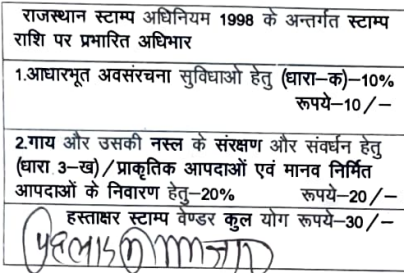 राजस्थान स्टाम्प अधिनियम 1998 के अन्तर्गत स्टाम्प
राशि पर प्रभारित अधिभार
1.आधारभूत अवसंरचना सुविधाओ हेतु (धारा–क)–10%
रूपये–10/–
2.गाय और उसकी नस्ल के संरक्षण और संवर्धन हेतु
(धारा 3–ख)/प्राकृतिक आपदाओं एवं मानव निर्मित
आपदाओं के निवारण हेतु–20% रूपये–20/–
हस्ताक्षर स्टाम्प वेण्डर कुल योग रूपये–30/–